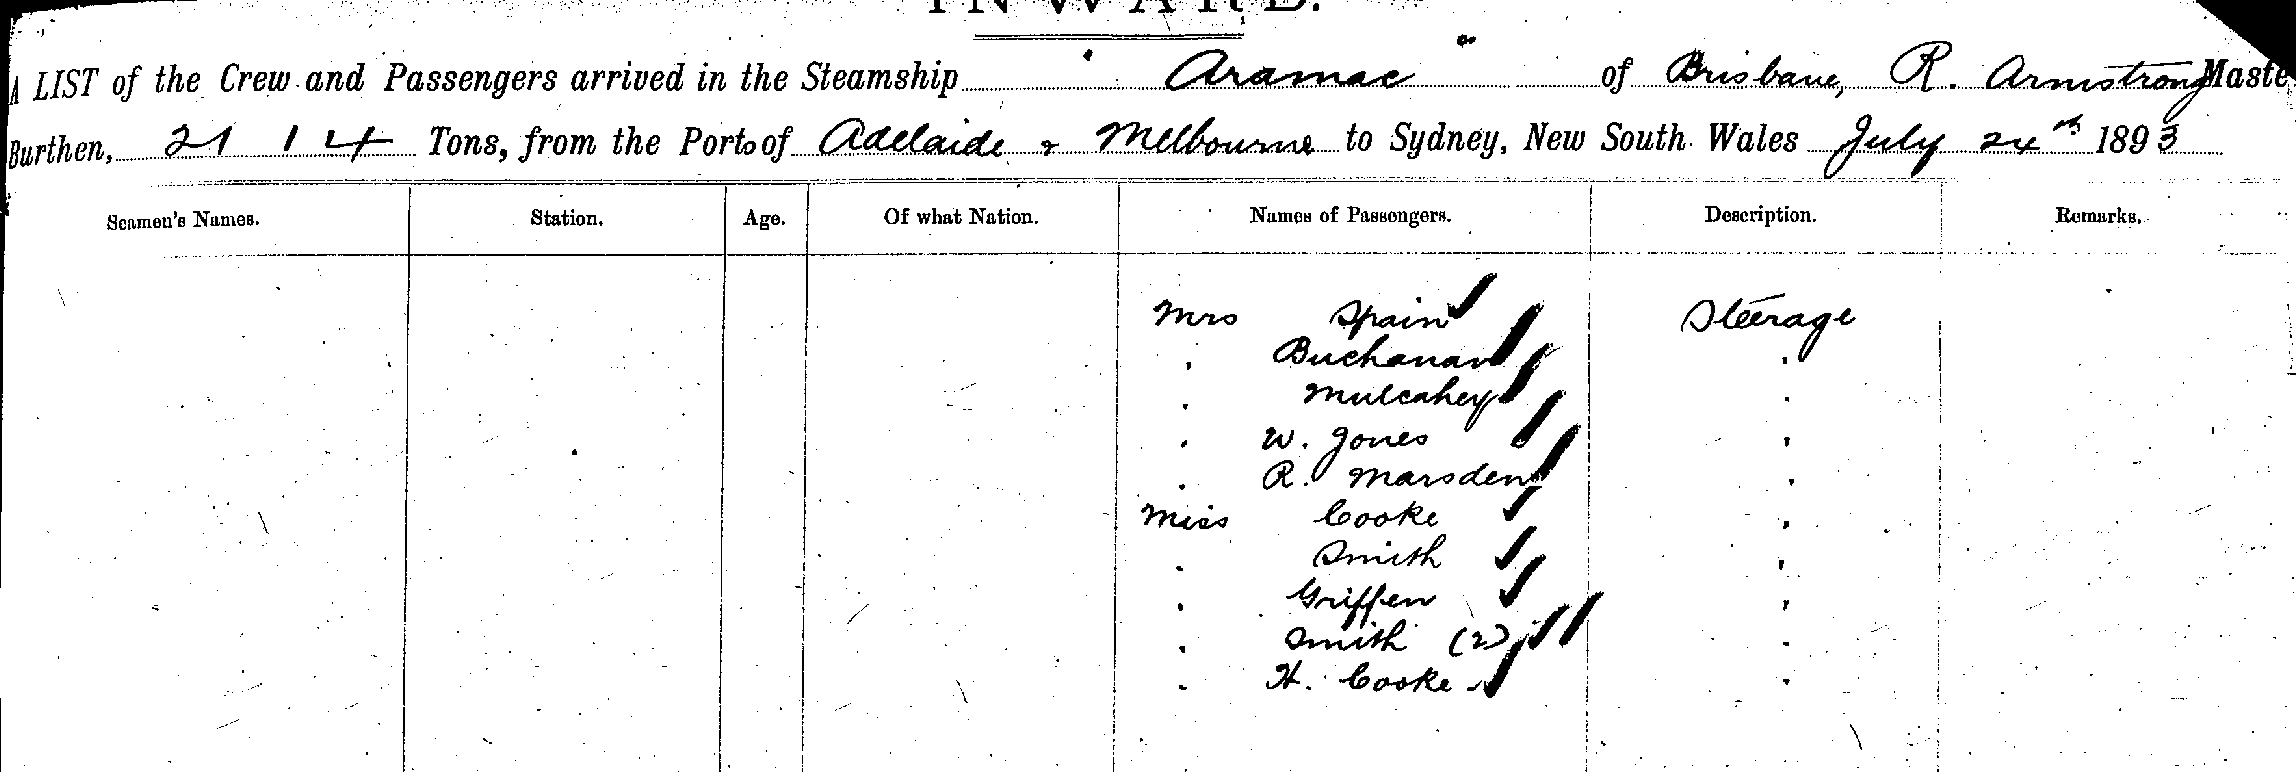 INWARD.
A LIST of the Crew and Passengers arrived in the Steamship "Aramac" of Brisbane, R. Armstrong Maste
Burthen, 2114 Tons, from the Port of Adelaide & Melbourne to Sydney, New South Wales July 24th 1893
Seamen's Names. Station. Age. Of what Nation. Names of Passengers. Description. Remarks.
Mrs Spain Steerage
" Buchanan "
" Mulcahey "
" W. Jones "
" R. Marsden "
Miss Cooke "
" Smith "
" Griffen "
" Smith (2) "
" H. Cooke "